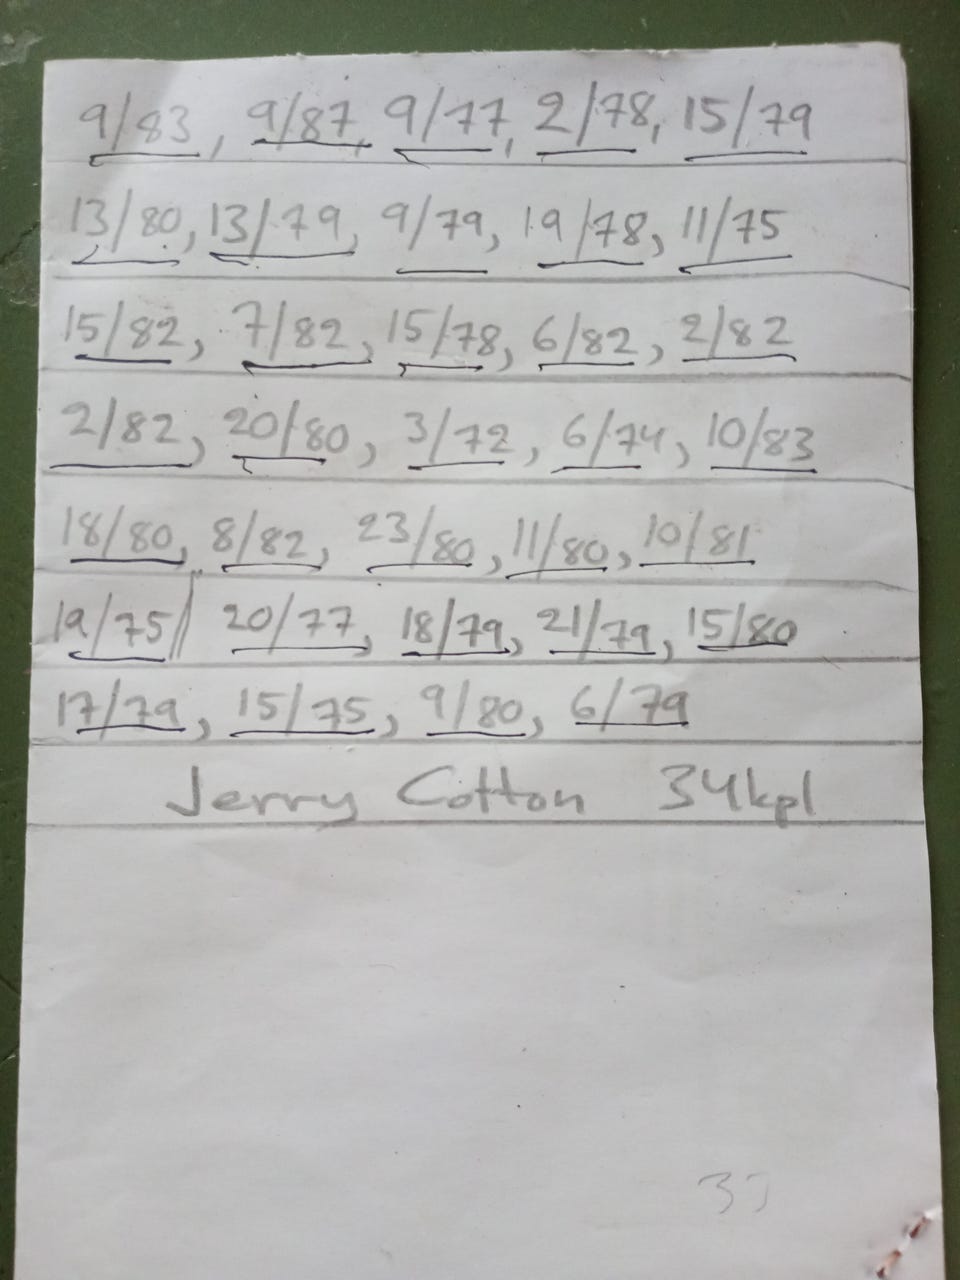 9/83, 9/87, 9/77, 2/78, 15/79
13/80, 13/79, 9/79, 19/78, 11/75
15/82, 7/82, 15/78, 6/82, 2/82
2/82, 20/80, 3/72, 6/74, 10/83
18/80, 8/82, 23/80, 11/80, 10/81
19/75// 20/77, 18/79, 21/79, 15/80
17/79, 15/75, 9/80, 6/79
Jerry Cotton 34kpl